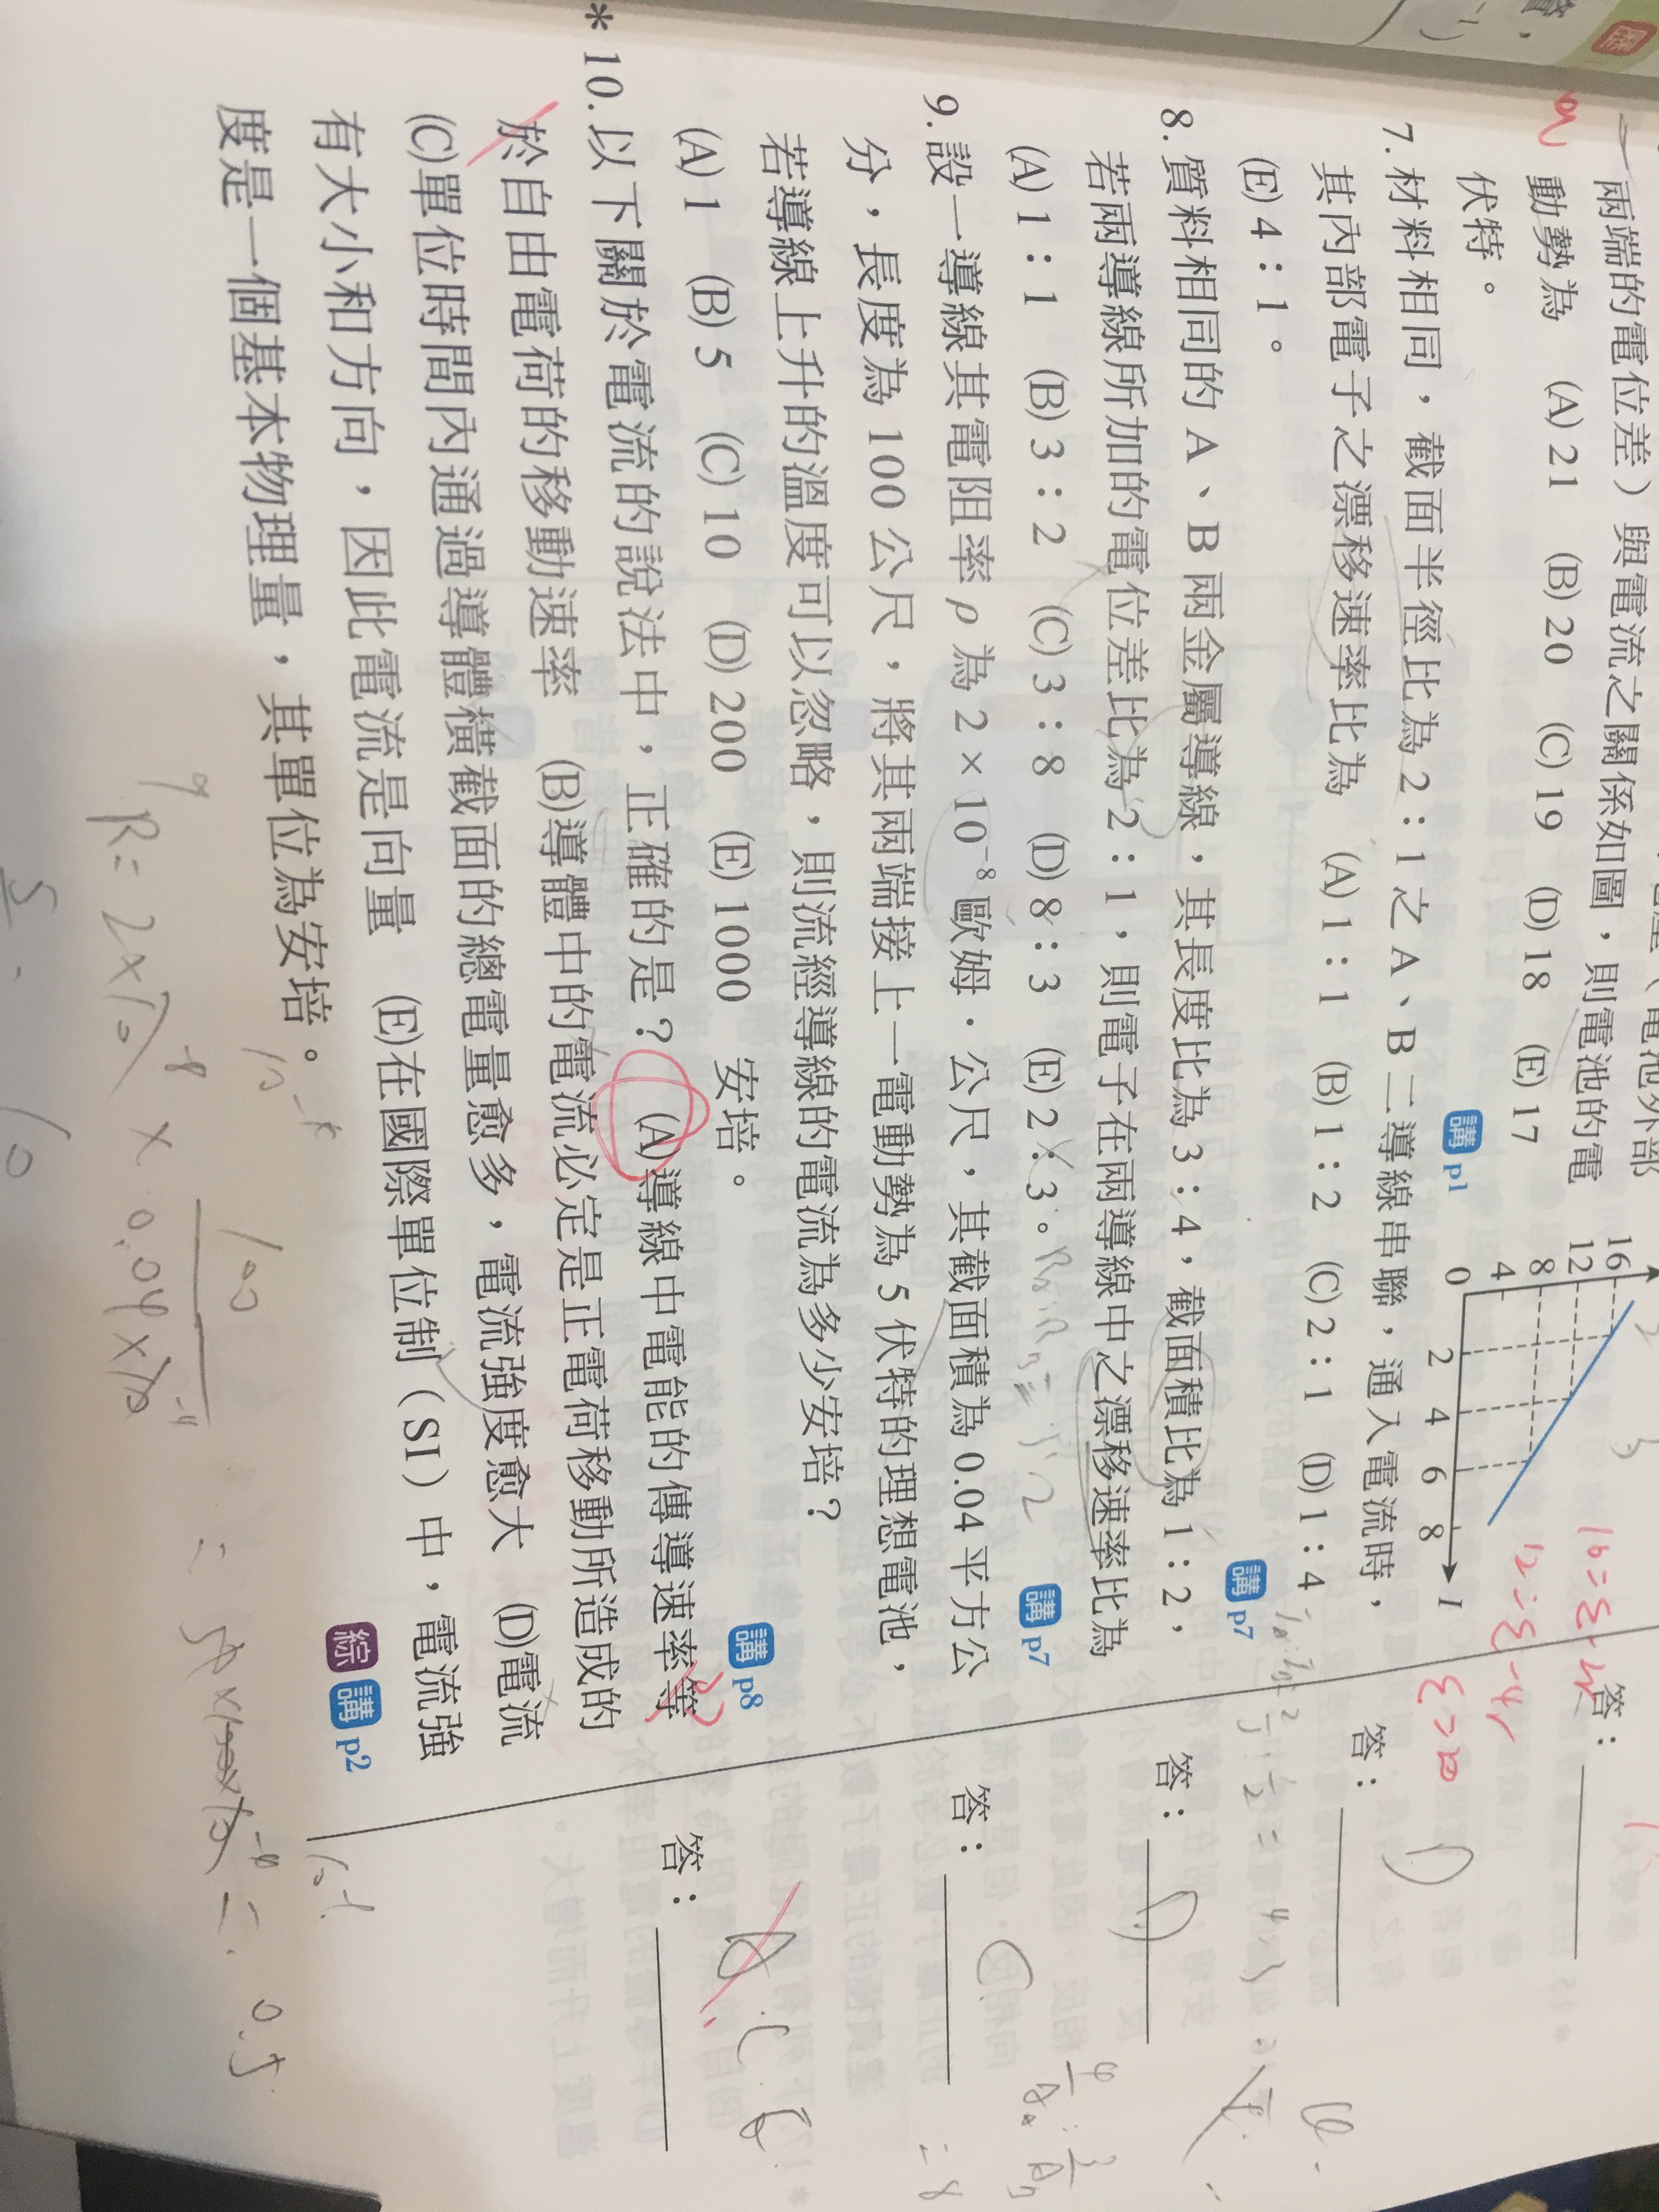 兩端的電位差）與電流之關係如圖，則電池的電
動勢為 (A) 21 (B) 20 (C) 19 (D) 18 (E) 17
伏特。
講 p1
16
12
8
4
0
2 4 6 8 I
16=ε-2r
12=ε-4r
ε>20
答：
7. 材料相同，截面半徑比為 2：1 之 A、B 二導線串聯，通入電流時，
其內部電子之漂移速率比為 (A) 1：1 (B) 1：2 (C) 2：1 (D) 1：4
(E) 4：1。
講 p7
答：
D
8. 質料相同的 A、B 兩金屬導線，其長度比為 3：4，截面積比為 1：2，
若兩導線所加的電位差比為 2：1，則電子在兩導線中之漂移速率比為
(A) 1：1 (B) 3：2 (C) 3：8 (D) 8：3 (E) 2：3。
講 p7
答：
D
9. 設一導線其電阻率 ρ 為 2 × 10⁻⁸ 歐姆．公尺，其截面積為 0.04 平方公
分，長度為 100 公尺，將其兩端接上一電動勢為 5 伏特的理想電池，
若導線上升的溫度可以忽略，則流經導線的電流為多少安培？
(A) 1 (B) 5 (C) 10 (D) 200 (E) 1000 安培。
講 p8
答：
C
*10. 以下關於電流的說法中，正確的是？ (A)導線中電能的傳導速率等
於自由電荷的移動速率 (B)導體中的電流必定是正電荷移動所造成的
(C)單位時間內通過導體橫截面的總電量愈多，電流強度愈大 (D)電流
有大小和方向，因此電流是向量 (E)在國際單位制（SI）中，電流強
度是一個基本物理量，其單位為安培。
綜 講 p2
答：
A.C.E
9 R= 2×10⁻⁸ × 100 / 0.04×10⁻⁴
= 0.5